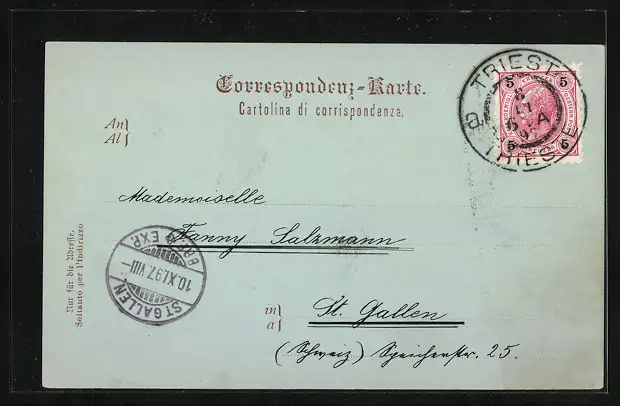 Correspondenz-Karte.
Cartolina di corrispondenza.
An
Al
Mademoiselle
Fanny Salzmann
in
a
St. Gallen
(Schweiz) Speicherstr. 25.
Nur für die Adresse.
Soltanto per l'indirizzo
TRIEST
TRIESTE
5
5
5
5
ST. GALLEN
10.XI.97.VIII–
BRF. EXP.